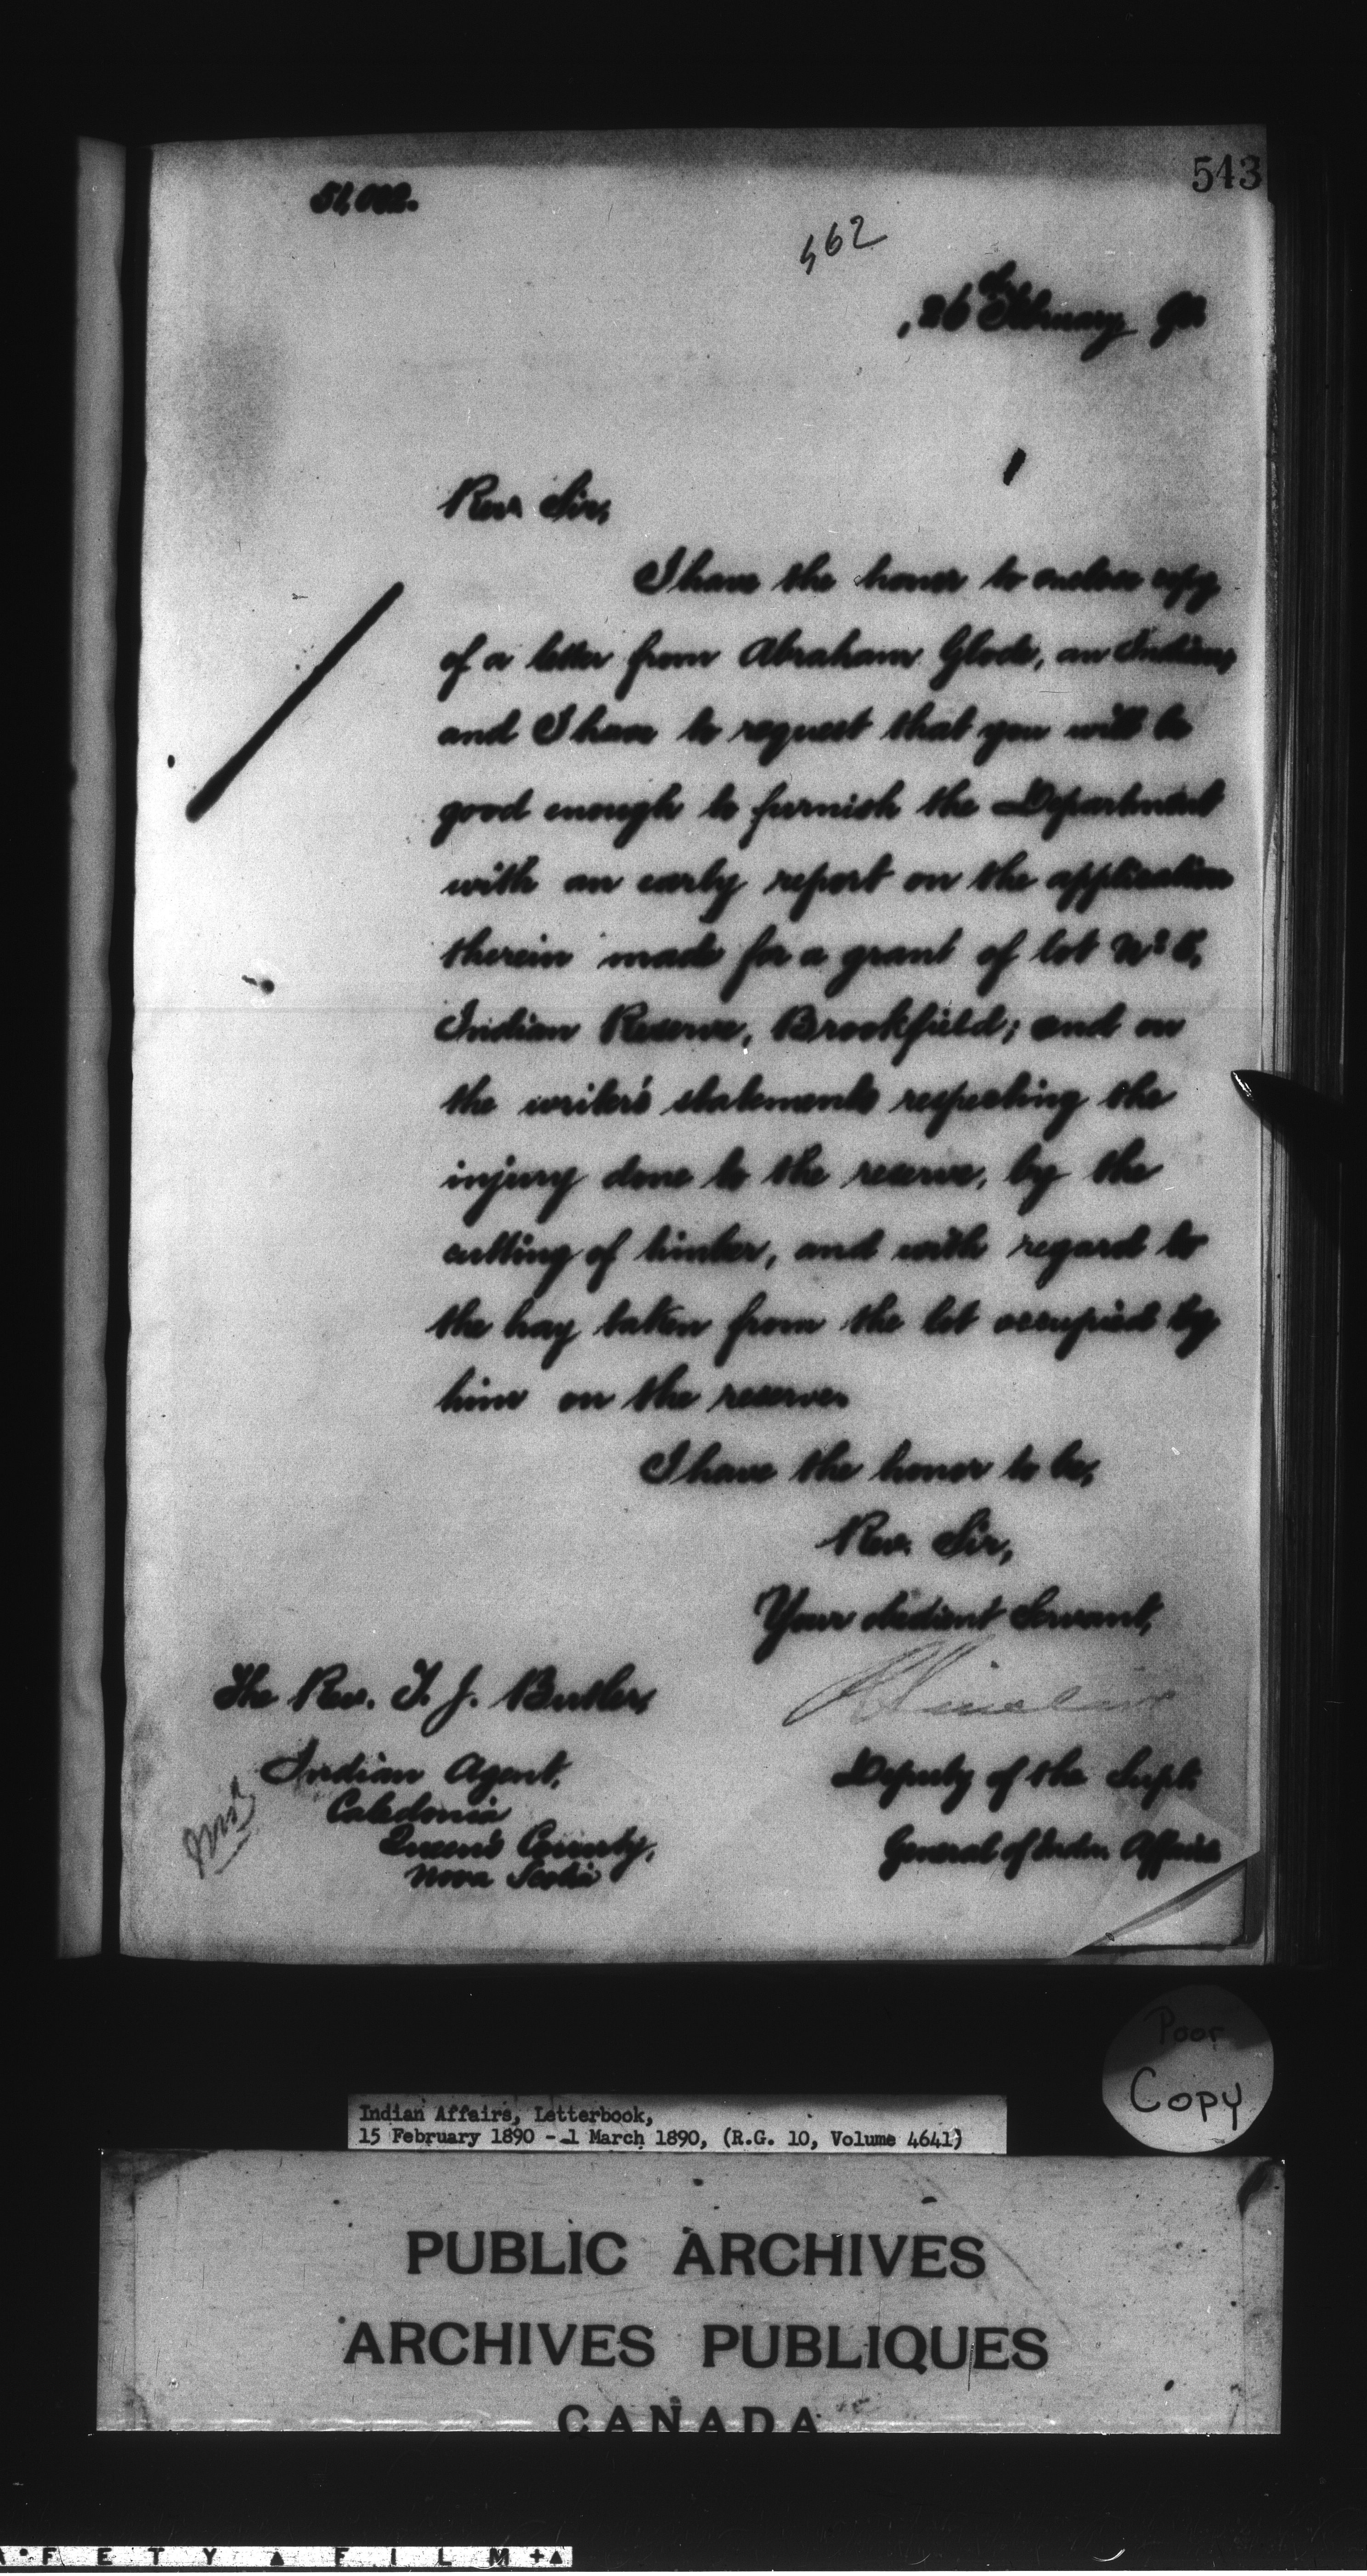 543
462
26th February 90
Rev. Sir,
I have the honor to enclose copy
of a letter from Abraham Glode, an Indian,
and I have to request that you will be
good enough to furnish the Department
with an early report on the application
therein made for a grant of lot No 8,
Indian Reserve, Brookfield; and on
the writer's statements respecting the
injury done to the reserve, by the
cutting of timber, and with regard to
the hay taken from the lot occupied by
him on the reserve.
I have the honor to be,
Rev. Sir,
Your obedient Servant,
The Rev. T. J. Butler,
Indian Agent,
Caledonia
Queen's County,
Nova Scotia
Deputy of the Supt.
General of Indn. Affairs
Poor
Copy
Indian Affairs, Letterbook,
15 February 1890 - 1 March 1890, (R.G. 10, Volume 4641)
PUBLIC ARCHIVES
ARCHIVES PUBLIQUES
CANADA
FETY FILM